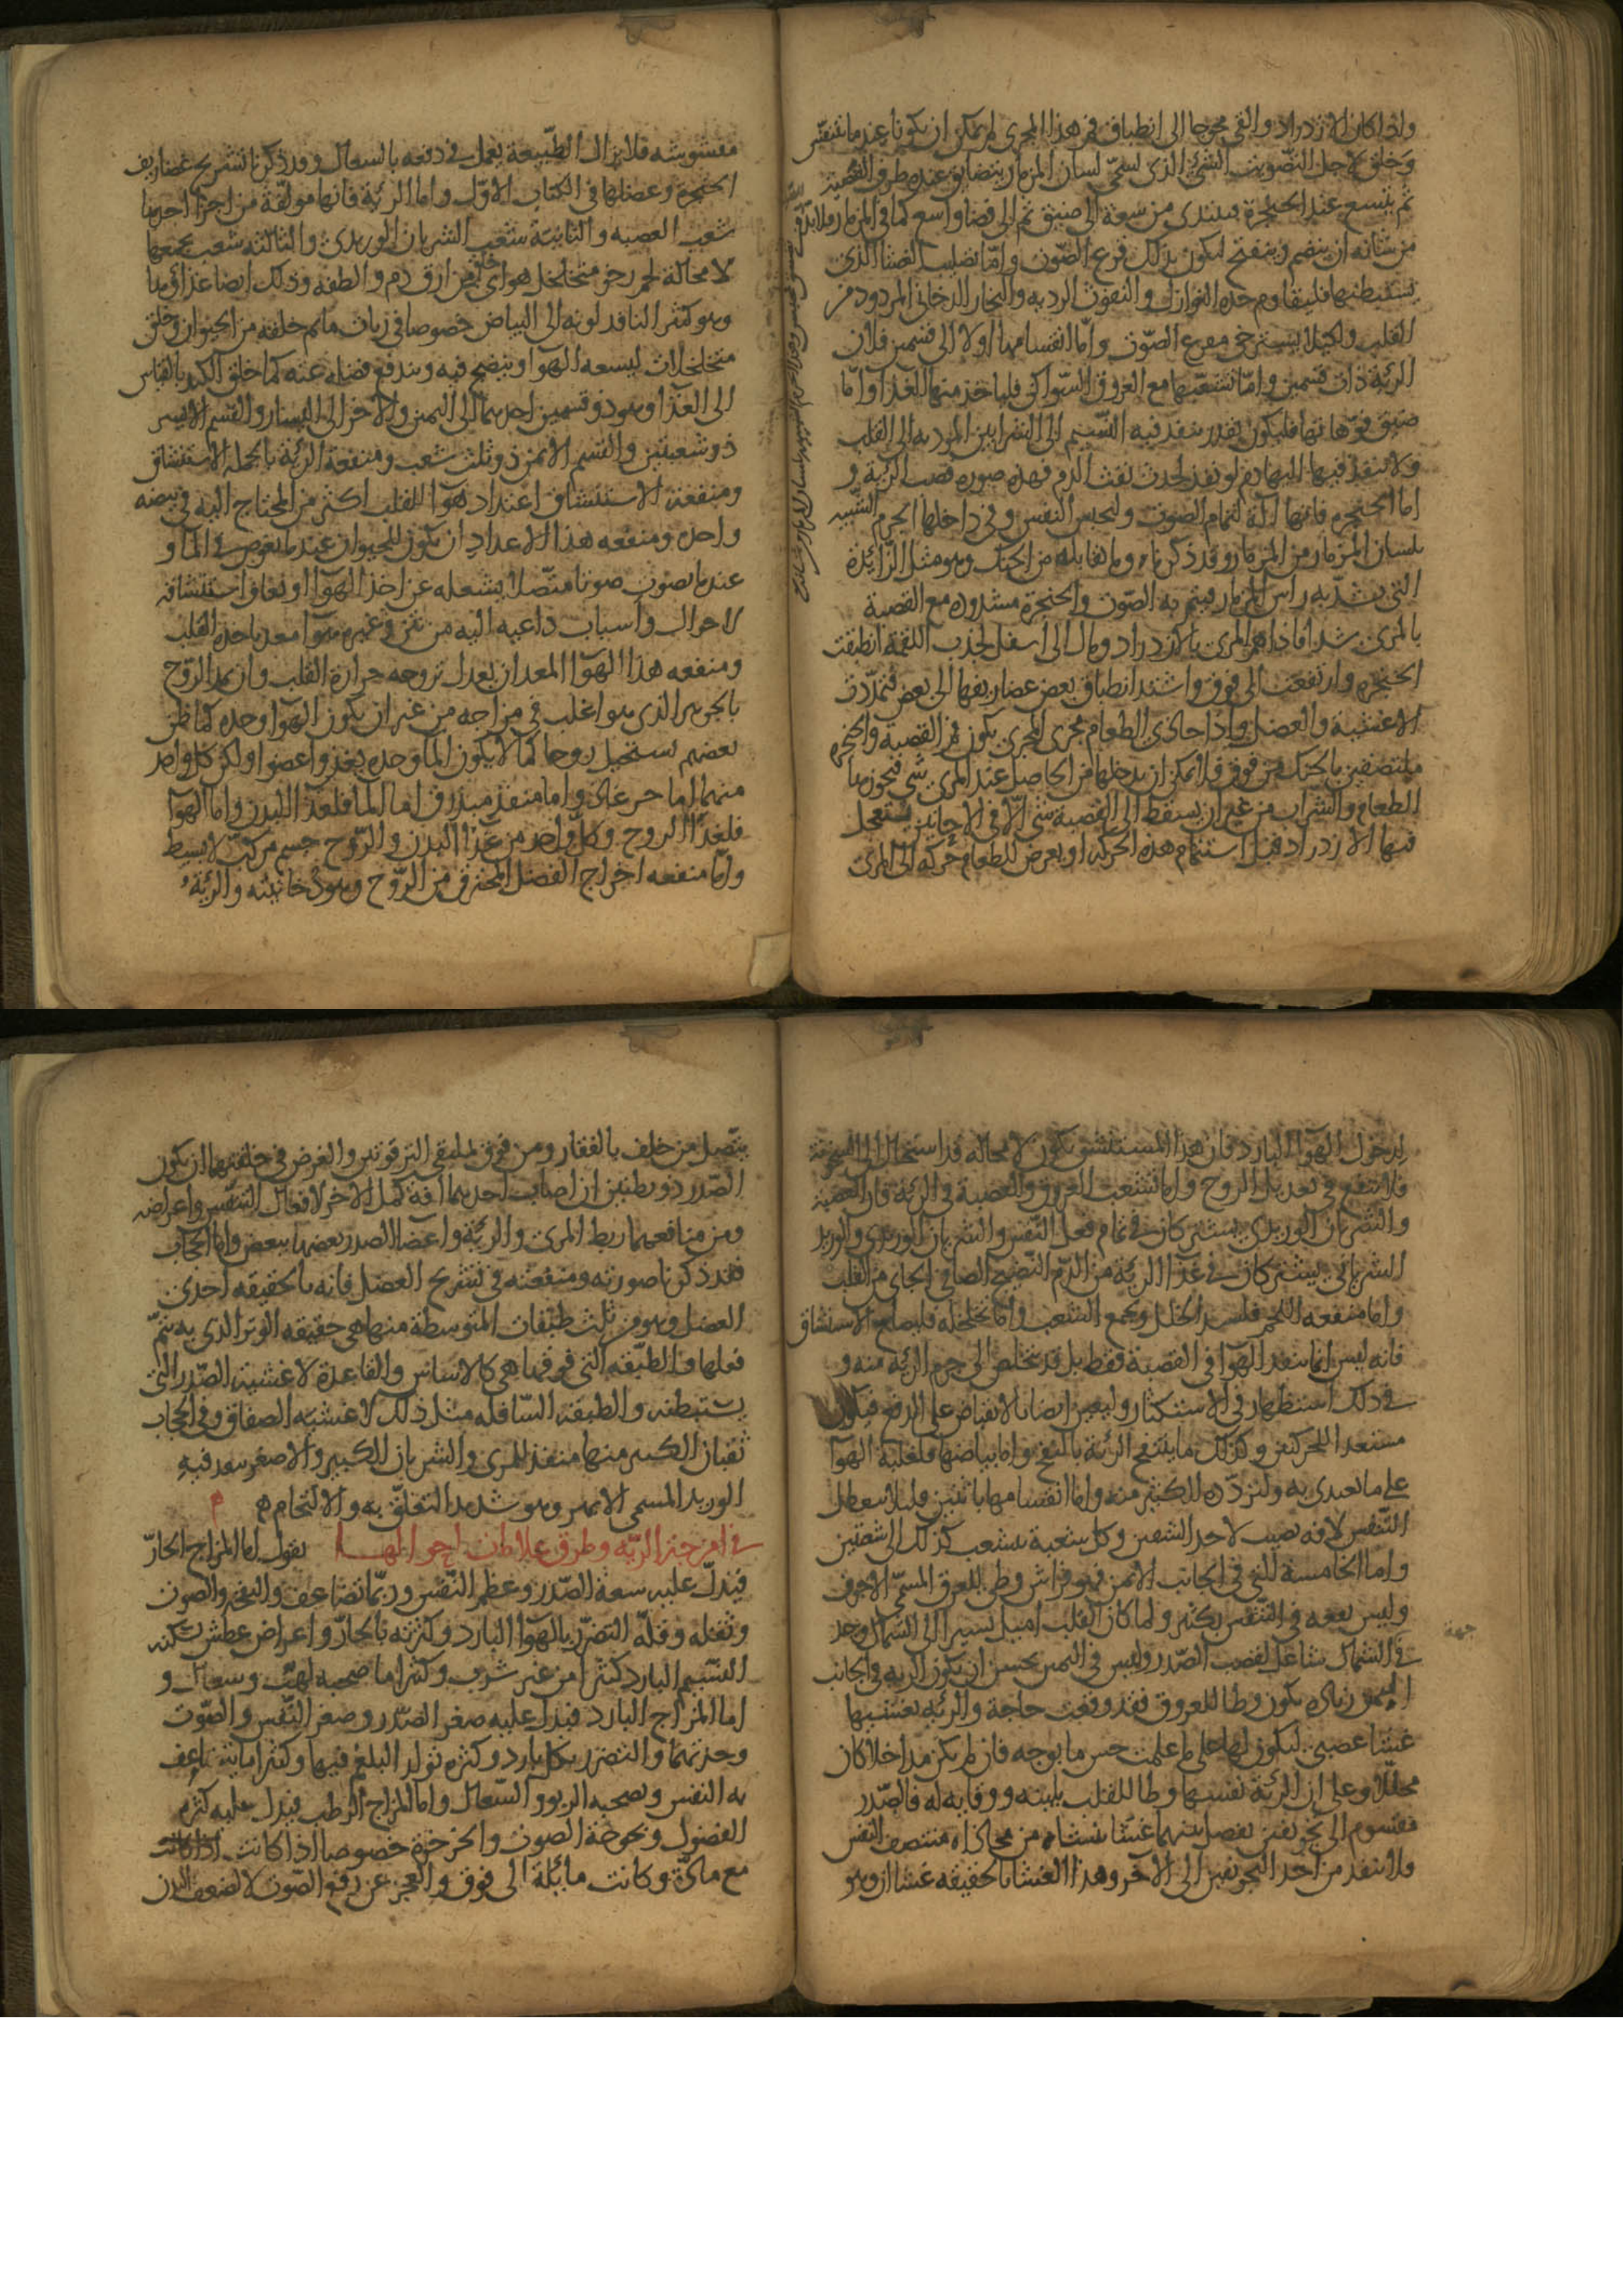 واذا كان الازدراد والقى محوجا الى انطباق فم هذا المجرى لم يمكن ان يكونا عند ما يتنفس
وخلق لاجل التصويت الشئ الذى يسمى لسان المزمار يتضايق عنده طرف القصبة
ثم يتسع عند الحنجرة فيبتدى من سعة الى ضيق ثم الى فضا واسع كما فى المزمار فلا بد
من شانه ان ينضم وينفتح ليكون بذلك قرع الصوت واما تصليب الغشا الذى
يستبطنها فليقاوم حده النوازل والنفوث الرديه والبخار الدخانى المردود من
القلب ولكيلا يسترخى مقرع الصوت واما انقسامها اولا الى قسمين فلان
الرئة ذات قسمين واما تشعبها مع العروق السواكن فلياخذ منها الغذا واما
ضيق فوهاتها فليكون بقدر ينفذ فيه النسيم الى الشرايين المودية الى القلب
ولا ينفذ فيها اليها دم لو نفذ لحدث نفث الدم فهذه صوره قصبة الرئة و
اما الحنجره فانها آلة لتمام الصوت ولحبس النفس وفى داخلها الجرم الشبيه
بلسان المزمار من المزمار وقد ذكرناه وما يقابله من الحنك وهو مثل الزائدة
التى يشد به راس المزمار فيتم به الصوت والحنجرة مشدوده مع القصبة
بالمرى شدا فاذا هم المرى بالازدراد ومال الى اسفل لجذب اللقمة انطبقت
الحنجره وارتفعت الى فوق واشتد انطباق بعض غضاريفها الى بعض فتمددت
الاغشية والعضل واذا حاذى الطعام مجرى المجرى يكون فم القصبة والحنجره
ملتصقين بالحنك من فوق فلا يمكن ان يدخلها من الحاصل عند المرى شى فيجوز بها
الطعام والشراب من غير ان يسقط الى القصبة شى الا فى الاحايين يستعجل
فيها الازدراد قبل استتمام هذه الحركه او يعرض للطعام حركه الى المرى
مشوشه فلا يزال الطبيعة يعمل فى دفعه بالسعال وقد ذكرنا تشريح غضاريف
الحنجره وعضلها فى الكتاب الاول واما الرئة فانها مولفة من اجزا احدها
شعب القصبه والثانية شعب الشريان الوريدى والثالثه شعب يجمعها
لا محالة لحم رخو متخلخل هواى خلق من ارق دم والطفه وذلك ايضا غذاؤها
وهو كثير المنافذ لونه الى البياض خصوصا فى ريات ما تم خلقه من الحيوان وخلق
متخلخلا ليسعه الهوا وينضج فيه ويندفع فضله عنه كما خلق الكبد بالقياس
الى الغذا وهو ذو قسمين احدهما الى اليمين والاخر الى اليسار والقسم الايسر
ذو شعبتين والقسم الايمن ذو ثلث شعب ومنفعة الرئة بالجمله الاستنشاق
ومنفعة الاستنشاق اعداد هوا للقلب اكثر من المحتاج اليه فى نبضه
واحده ومنفعه هذا الاعداد ان يكون للحيوان عند ما يغوص فى الما و
عند ما يصوت صوتا متصلا يشغله عن اخذ الهوا او يعاف استنشاقه
لاحوال واسباب داعيه اليه من نتن وغيره هوا معد ياخذه القلب
ومنفعه هذا الهوا المعد ان يعدل تروحه حرارة القلب وان يمد الروح
بالجوهر الذى هو اغلب فى مزاجه من غير ان يكون الهوا وحده كما ظن
بعضهم يستحيل روحا كما لا يكون الما وحده يغذو عضوا ولكن كل واحد
منهما اما جز غاذى واما منفذ مبذرق اما الما فلغذا البدن واما الهوا
فلغذا الروح وكل واحد من غذا البدن والروح جسم مركب لا بسيط
واما منفعه اخراج الفضل المحترق من الروح وهو دخانيته والرئة
لدخول الهوا البارد فان هذا المستنشق يكون لا محاله قد استحال الى السخونة
فلا ينفع فى تعديل الروح واما تشعب العروق والقصبة فى الرئة فان القصبة
والشريان الوريدى يشتركان فى تمام فعل النفس والشريان الوريدى والوريد
الشريانى يشتركان فى غذا الرئة من الدم النضيج الصافى الجاى من القلب
واما منفعه اللحم فليسد الخلل ويجمع الشعب واما تخلخله فليصلح الاستنشاق
فانه ليس انما ينفذ الهوا فى القصبة فقط بل قد يتخلص الى جرم الرئه منه و
فى ذلك استظهار فى الاستكثار وليعين ايضا بالانقباض على الدفع فيكون
مستعدا للحركتين وكذلك ما ينتفخ الرئة بالنفخ واما بياضها فلغلبة الهوا
على ما تغدى به ولتردده الكثير منه واما انقسامها باثنين فليلا يتعطل
التنفس لافه تصيب لاحد الشقين وكل شعبة يتشعب كذلك الى شعبتين
واما الخامسة التى فى الجانب الايمن فهو فراش وطى للعرق المسمى الاجوف
وليس نفعه فى النفس بكثير ولما كان القلب اميل يسيرا الى الشمال وجد
جهة
فى الشمال شاغل لفضا الصدر وليس فى اليمين يحسن ان يكون الريه فى الجانب
اليمين زياده يكون وطا للعروق فقد وقعت حاجة والرئه يغشيها
غشا عصبى ليكون لها على ما علمت حس ما بوجه فان لم يكن مداخلا كان
مجللا وعلى ان الرئة نفسها وطا للقلب بلينه ووقايه له فالصدر
مقسوم الى تجويفين يفصل بينهما غشا ينشا من محاذاه منتصف القص
فلا منفذ من احد التجويفين الى الاخر وهذا الغشا بالحقيقه غشاان وهو
يتصل من خلف بالفقار ومن فوق بملتقى الترقوتين والغرض فى خلقتهما ان يكون
الصدر ذو بطنين ان اصابت احدهما افة كمل الاخر لافعال التنفس واعراضه
ومن منافعهما ربط المرى والرئة واعضا الصدر بعضها ببعض واما الحجاب
فقد ذكرنا صورته ومنفعته فى تشريح العضل فانه بالحقيقه احدى
العضل وهو من ثلث طبقات المتوسطة منها هى حقيقه الوتر الذى به يتم
فعلها والطبقه التى فوقها هى كالاساس والقاعدة لاغشية الصدر التى
يستبطنه والطبقة السافله مثل ذلك لاغشية الصفاق وفى الحجاب
ثقبان الكبير منهما منفذ للمرى والشريان الكبير والاصغر ينفذ فيه
الوريد المسمى الابهر وهو شديد التعلق به والالتحام م م
فى امزجة الريه وطرق علامات احوالها نقول اما المزاج الحار
فيدل عليه سعة الصدر وعظم النفس وربما تضاعف والنفخ والصوت
وثقله وقلة التضرر بالهوا البارد وكثرته بالحار واعراض عطش يسكنه
النسيم البارد كثيرا من غير شرب وكثيرا ما صحبه لهث وسعال و
اما المزاج البارد فيدل عليه صغر الصدر وصغر النفس والصوت
وحدتهما والتضرر بكل بارد وكثره تولد البلغم فيها وكثيرا ما يتضاعف
به النفس ويصحبه الربو والسعال واما المزاج الرطب فيدل عليه كثرة
الفضول وبحوحة الصوت والخرخرة خصوصا اذا كانت
مع مادة وكانت مايلة الى فوق والعجز عن رفع الصوت لا لضعف البدن